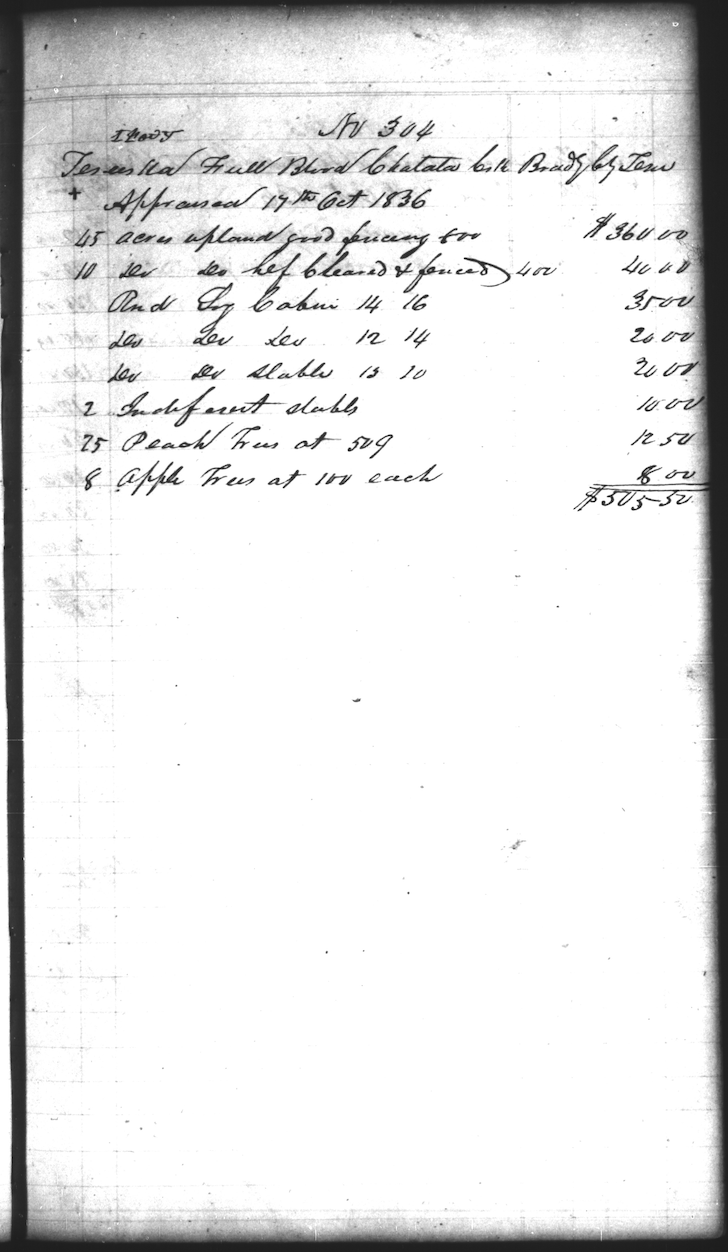 No 304
Tesuska Full Blood Chatata Crk Bradly Cty Tenn
+ Appraised 17th Oct 1836
45 acres upland good fencing 800 $360 00
10 do do hlf Cleared & fenced 400 40 00
Rnd Log Cabin 14 16 35 00
do do do 12 14 20 00
do do stable 13 10 20 00
2 Indeferent stabls 10 00
25 Peach Trees at 50 12 50
8 apple Trees at 100 each 8 00
$505 50